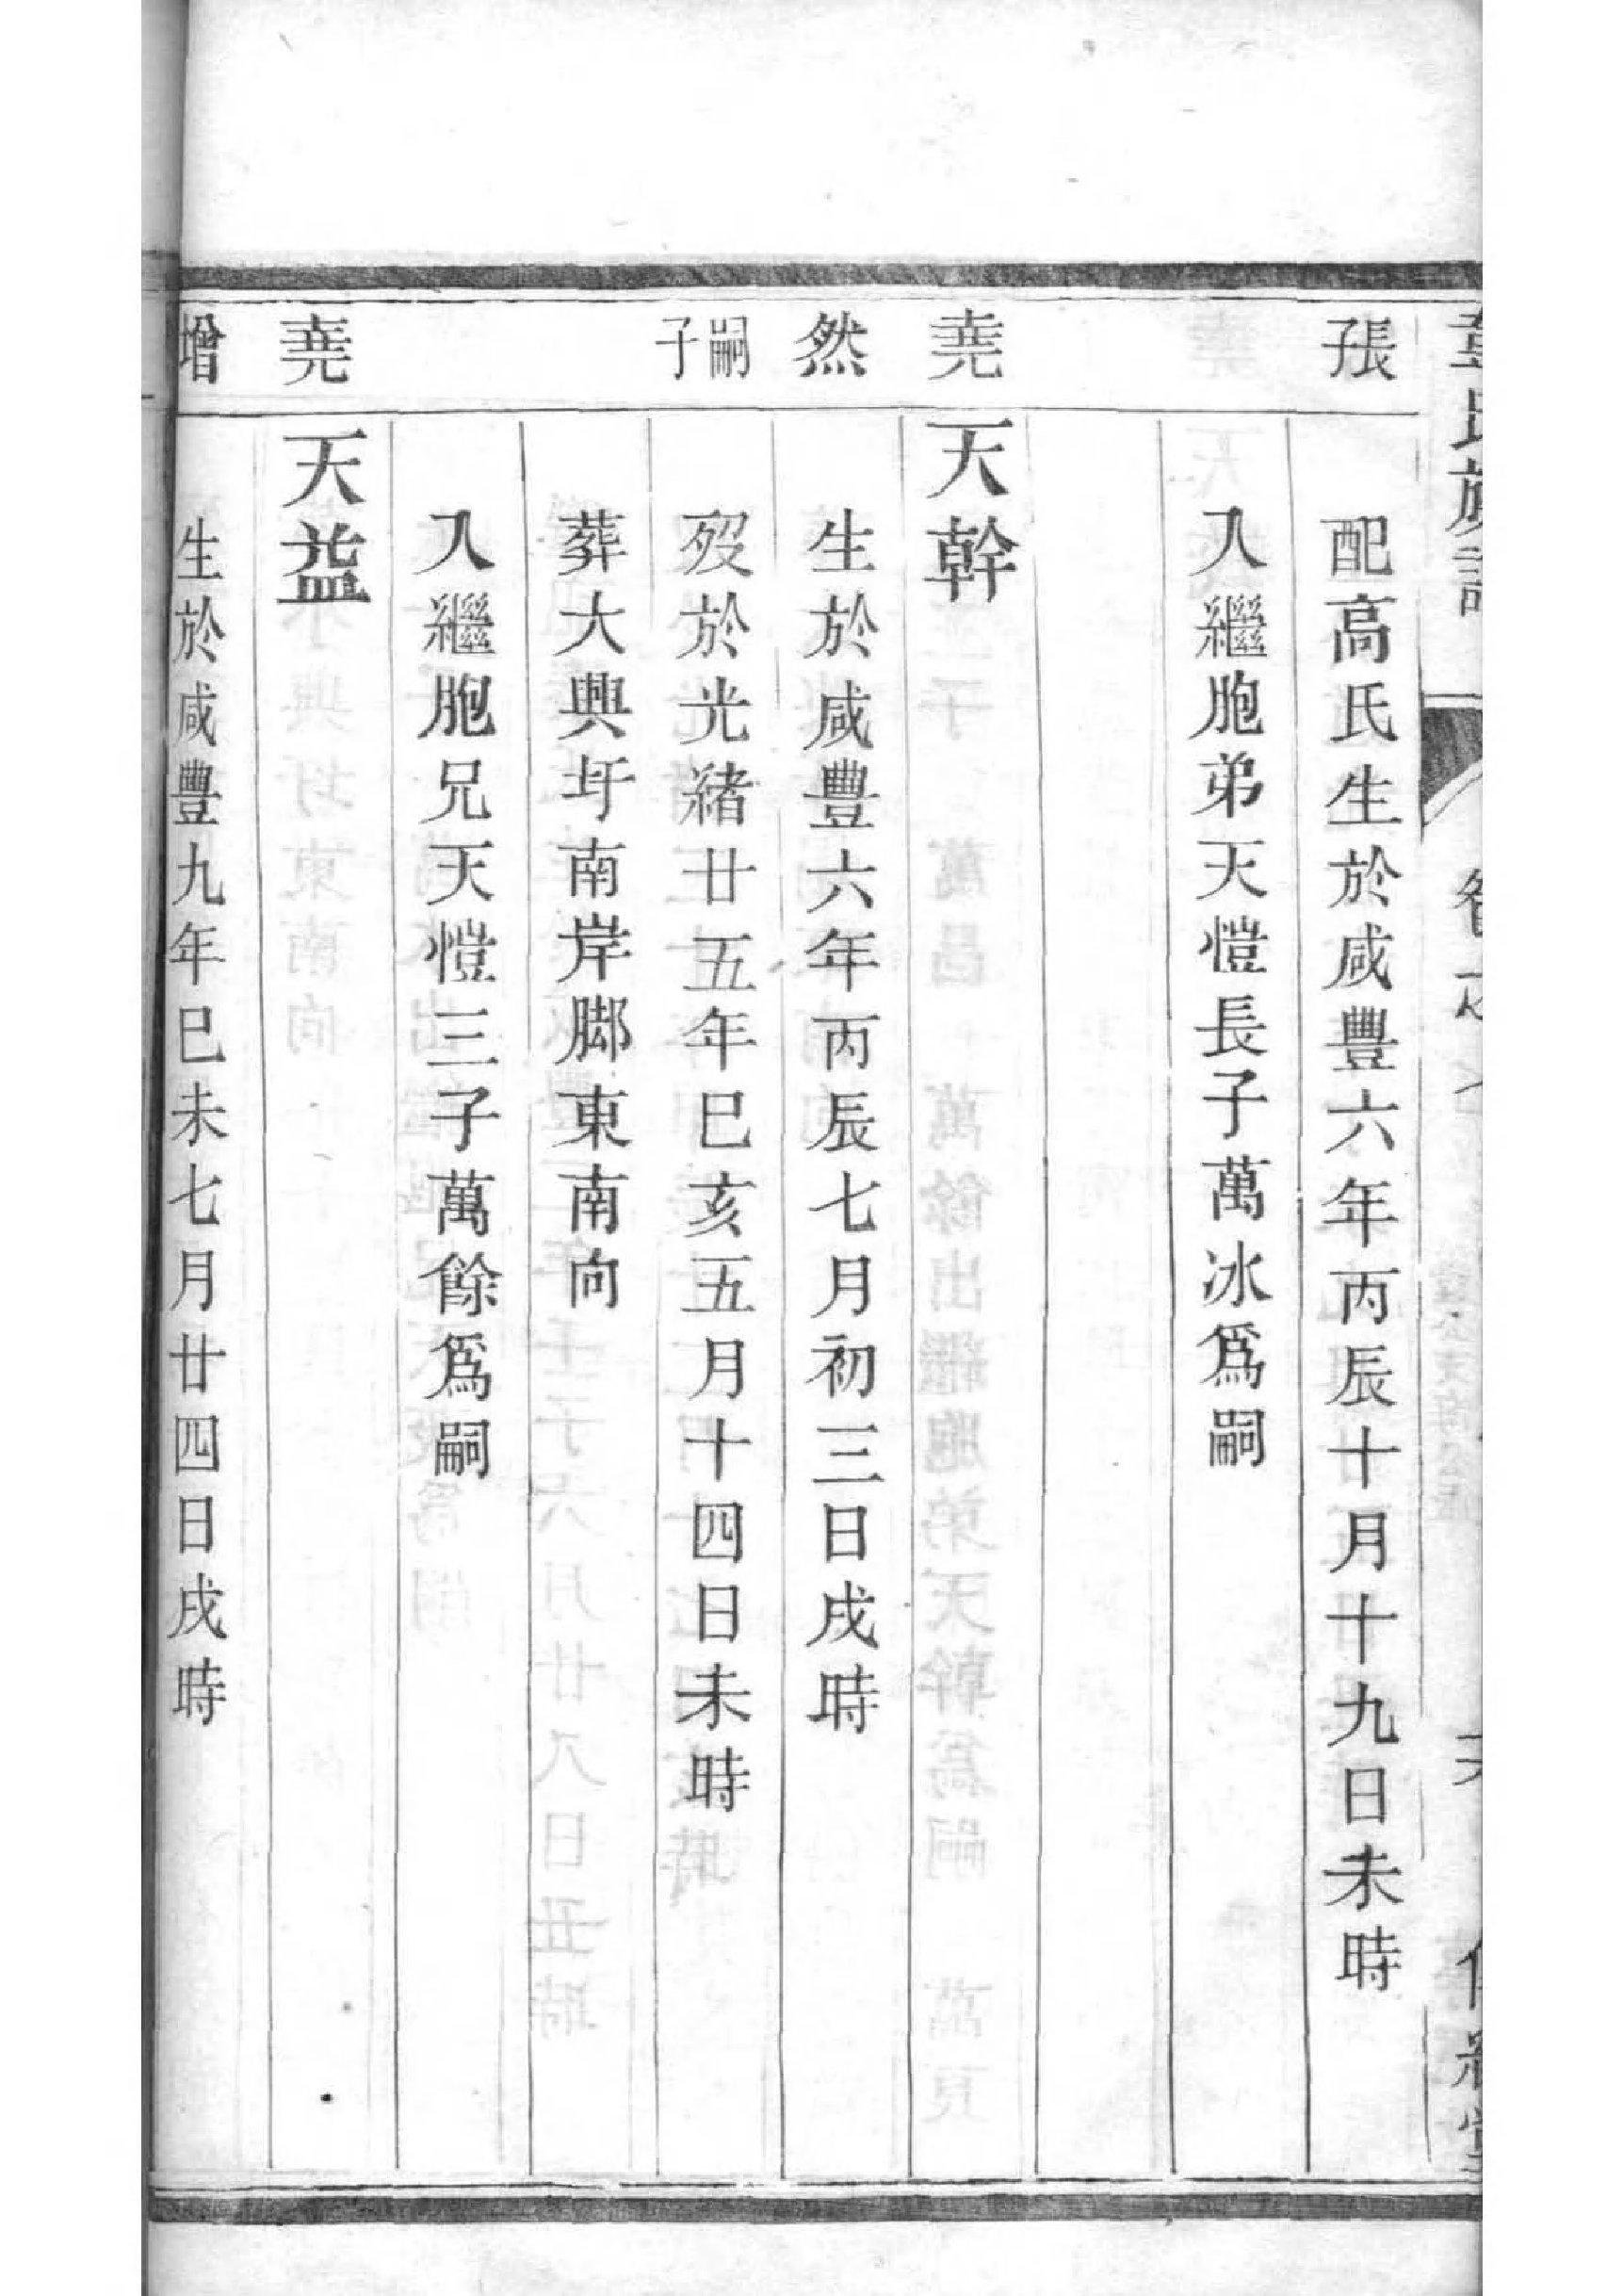 張
配高氏生於咸豐六年丙辰十月十九日未時
入繼胞弟天愷長子萬冰爲嗣
堯
天幹
然
生於咸豐六年丙辰七月初三日戌時
嗣子
歿於光緒廿五年巳亥五月十四日未時
葬大興圩南岸腳東南向
入繼胞兄天愷三子萬餘爲嗣
堯
天益
增
生於咸豐九年巳未七月廿四日戌時